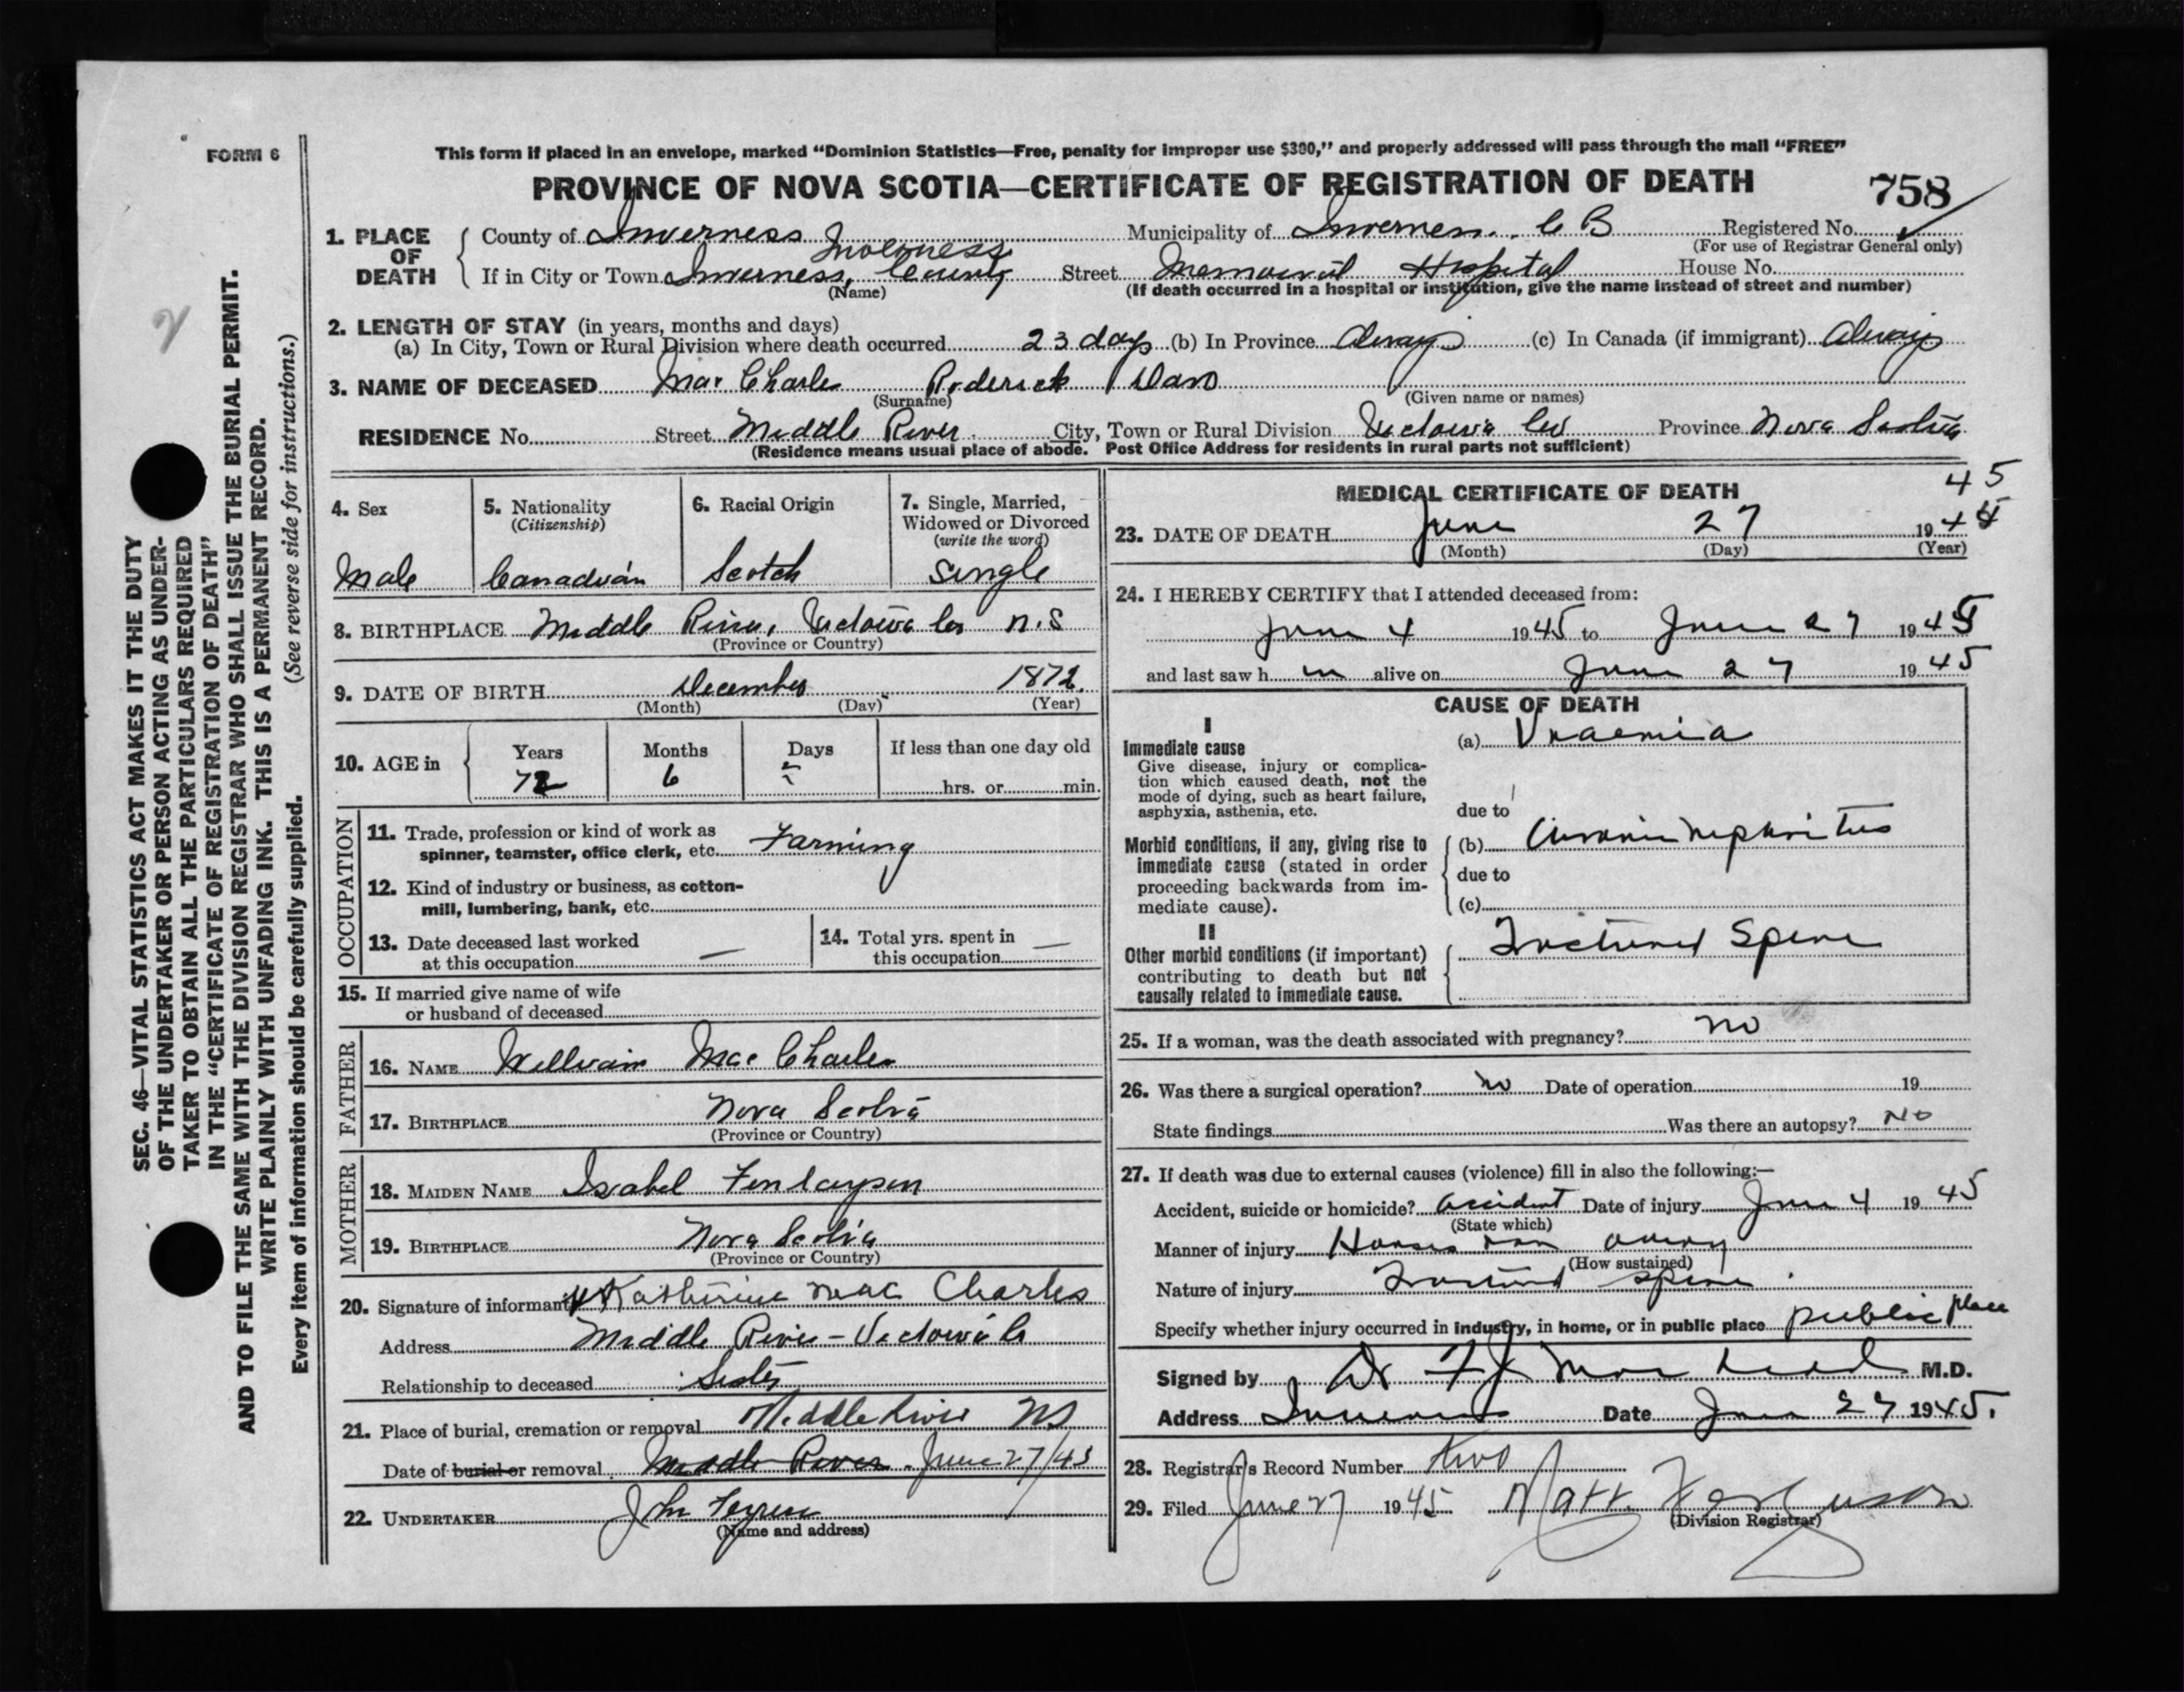 FORM 6
This form if placed in an envelope, marked “Dominion Statistics—Free, penalty for improper use $300,” and properly addressed will pass through the mail “FREE”
PROVINCE OF NOVA SCOTIA—CERTIFICATE OF REGISTRATION OF DEATH
758
1. PLACE OF DEATH
County of Inverness Municipality of Inverness. C B Registered No.
(For use of Registrar General only)
Inverness
If in City or Town Inverness, County Street Memorial Hospital House No.
(Name) (If death occurred in a hospital or institution, give the name instead of street and number)
2. LENGTH OF STAY (in years, months and days)
(a) In City, Town or Rural Division where death occurred 23 days (b) In Province Always (c) In Canada (if immigrant) Always
3. NAME OF DECEASED Mac Charles Roderick Dan
(Surname) (Given name or names)
RESIDENCE No. Street Middle River City, Town or Rural Division Victoria Co Province Nova Scotia
(Residence means usual place of abode. Post Office Address for residents in rural parts not sufficient)
4. Sex
Male
5. Nationality
(Citizenship)
Canadian
6. Racial Origin
Scotch
7. Single, Married,
Widowed or Divorced
(write the word)
Single
8. BIRTHPLACE Middle River, Victoria Co N.S
(Province or Country)
9. DATE OF BIRTH December 1872
(Month) (Day) (Year)
10. AGE in
Years Months Days If less than one day old
72 6 hrs. or min.
OCCUPATION
11. Trade, profession or kind of work as
spinner, teamster, office clerk, etc. Farming
12. Kind of industry or business, as cotton-
mill, lumbering, bank, etc.
13. Date deceased last worked
at this occupation —
14. Total yrs. spent in
this occupation —
15. If married give name of wife
or husband of deceased
FATHER
16. NAME William Mac Charles
17. BIRTHPLACE Nova Scotia
(Province or Country)
MOTHER
18. MAIDEN NAME Isabel Finlayson
19. BIRTHPLACE Nova Scotia
(Province or Country)
20. Signature of informant Katherine Mac Charles
Address Middle River - Victoria Co
Relationship to deceased Sister
21. Place of burial, cremation or removal Middle River NS
Date of burial or removal Middle River June 27/45
22. UNDERTAKER John
(Name and address)
MEDICAL CERTIFICATE OF DEATH
45
23. DATE OF DEATH June 27 1944
(Month) (Day) (Year)
24. I HEREBY CERTIFY that I attended deceased from:
June 4 1945 to June 27 1945
and last saw h im alive on June 27 1945
CAUSE OF DEATH
I
Immediate cause
Give disease, injury or complica-
tion which caused death, not the
mode of dying, such as heart failure,
asphyxia, asthenia, etc.
(a) Uraemia
due to
Morbid conditions, if any, giving rise to
immediate cause (stated in order
proceeding backwards from im-
mediate cause).
(b) Chronic nephritis
due to
(c)
II
Other morbid conditions (if important)
contributing to death but not
causally related to immediate cause.
Fractured Spine
25. If a woman, was the death associated with pregnancy? no
26. Was there a surgical operation? no Date of operation 19
State findings Was there an autopsy? No
27. If death was due to external causes (violence) fill in also the following:—
Accident, suicide or homicide? Accident Date of injury June 4 1945
(State which)
Manner of injury Horses ran away
(How sustained)
Nature of injury Fractured spine
Specify whether injury occurred in industry, in home, or in public place public place
Signed by Dr M.D.
Address Inverness Date June 27 1945.
28. Registrar's Record Number
29. Filed June 27 1945 Matt. Ferguson
(Division Registrar)
SEC. 46—VITAL STATISTICS ACT MAKES IT THE DUTY
OF THE UNDERTAKER OR PERSON ACTING AS UNDER-
TAKER TO OBTAIN ALL THE PARTICULARS REQUIRED
IN THE “CERTIFICATE OF REGISTRATION OF DEATH”
AND TO FILE THE SAME WITH THE DIVISION REGISTRAR WHO SHALL ISSUE THE BURIAL PERMIT.
WRITE PLAINLY WITH UNFADING INK. THIS IS A PERMANENT RECORD.
Every item of information should be carefully supplied. (See reverse side for instructions.)